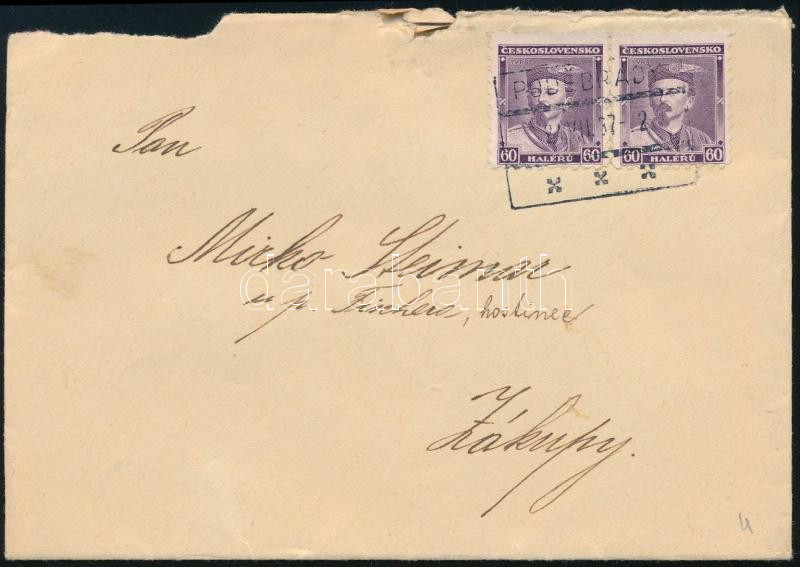 ČESKOSLOVENSKO ČESKOSLOVENSKO
PODĚBRADY
VII. 37 - 2
60 HALÉŘŮ 60 60 HALÉŘŮ 60
Pan
Mirko Steimar
u p. Fischera, hostinec
Zákupy.
darabanth
4